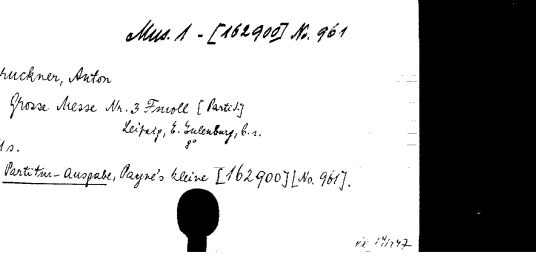 Mus. 1 - [162900] No. 961
ruckner, Anton
Grosse Messe Nr. 3 Fmoll [Partit.]
Leipzig, E. Eulenburg, o. J.
8°
1 s.
Partitur-Ausgabe, Payne's kleine [162900] [No. 961].